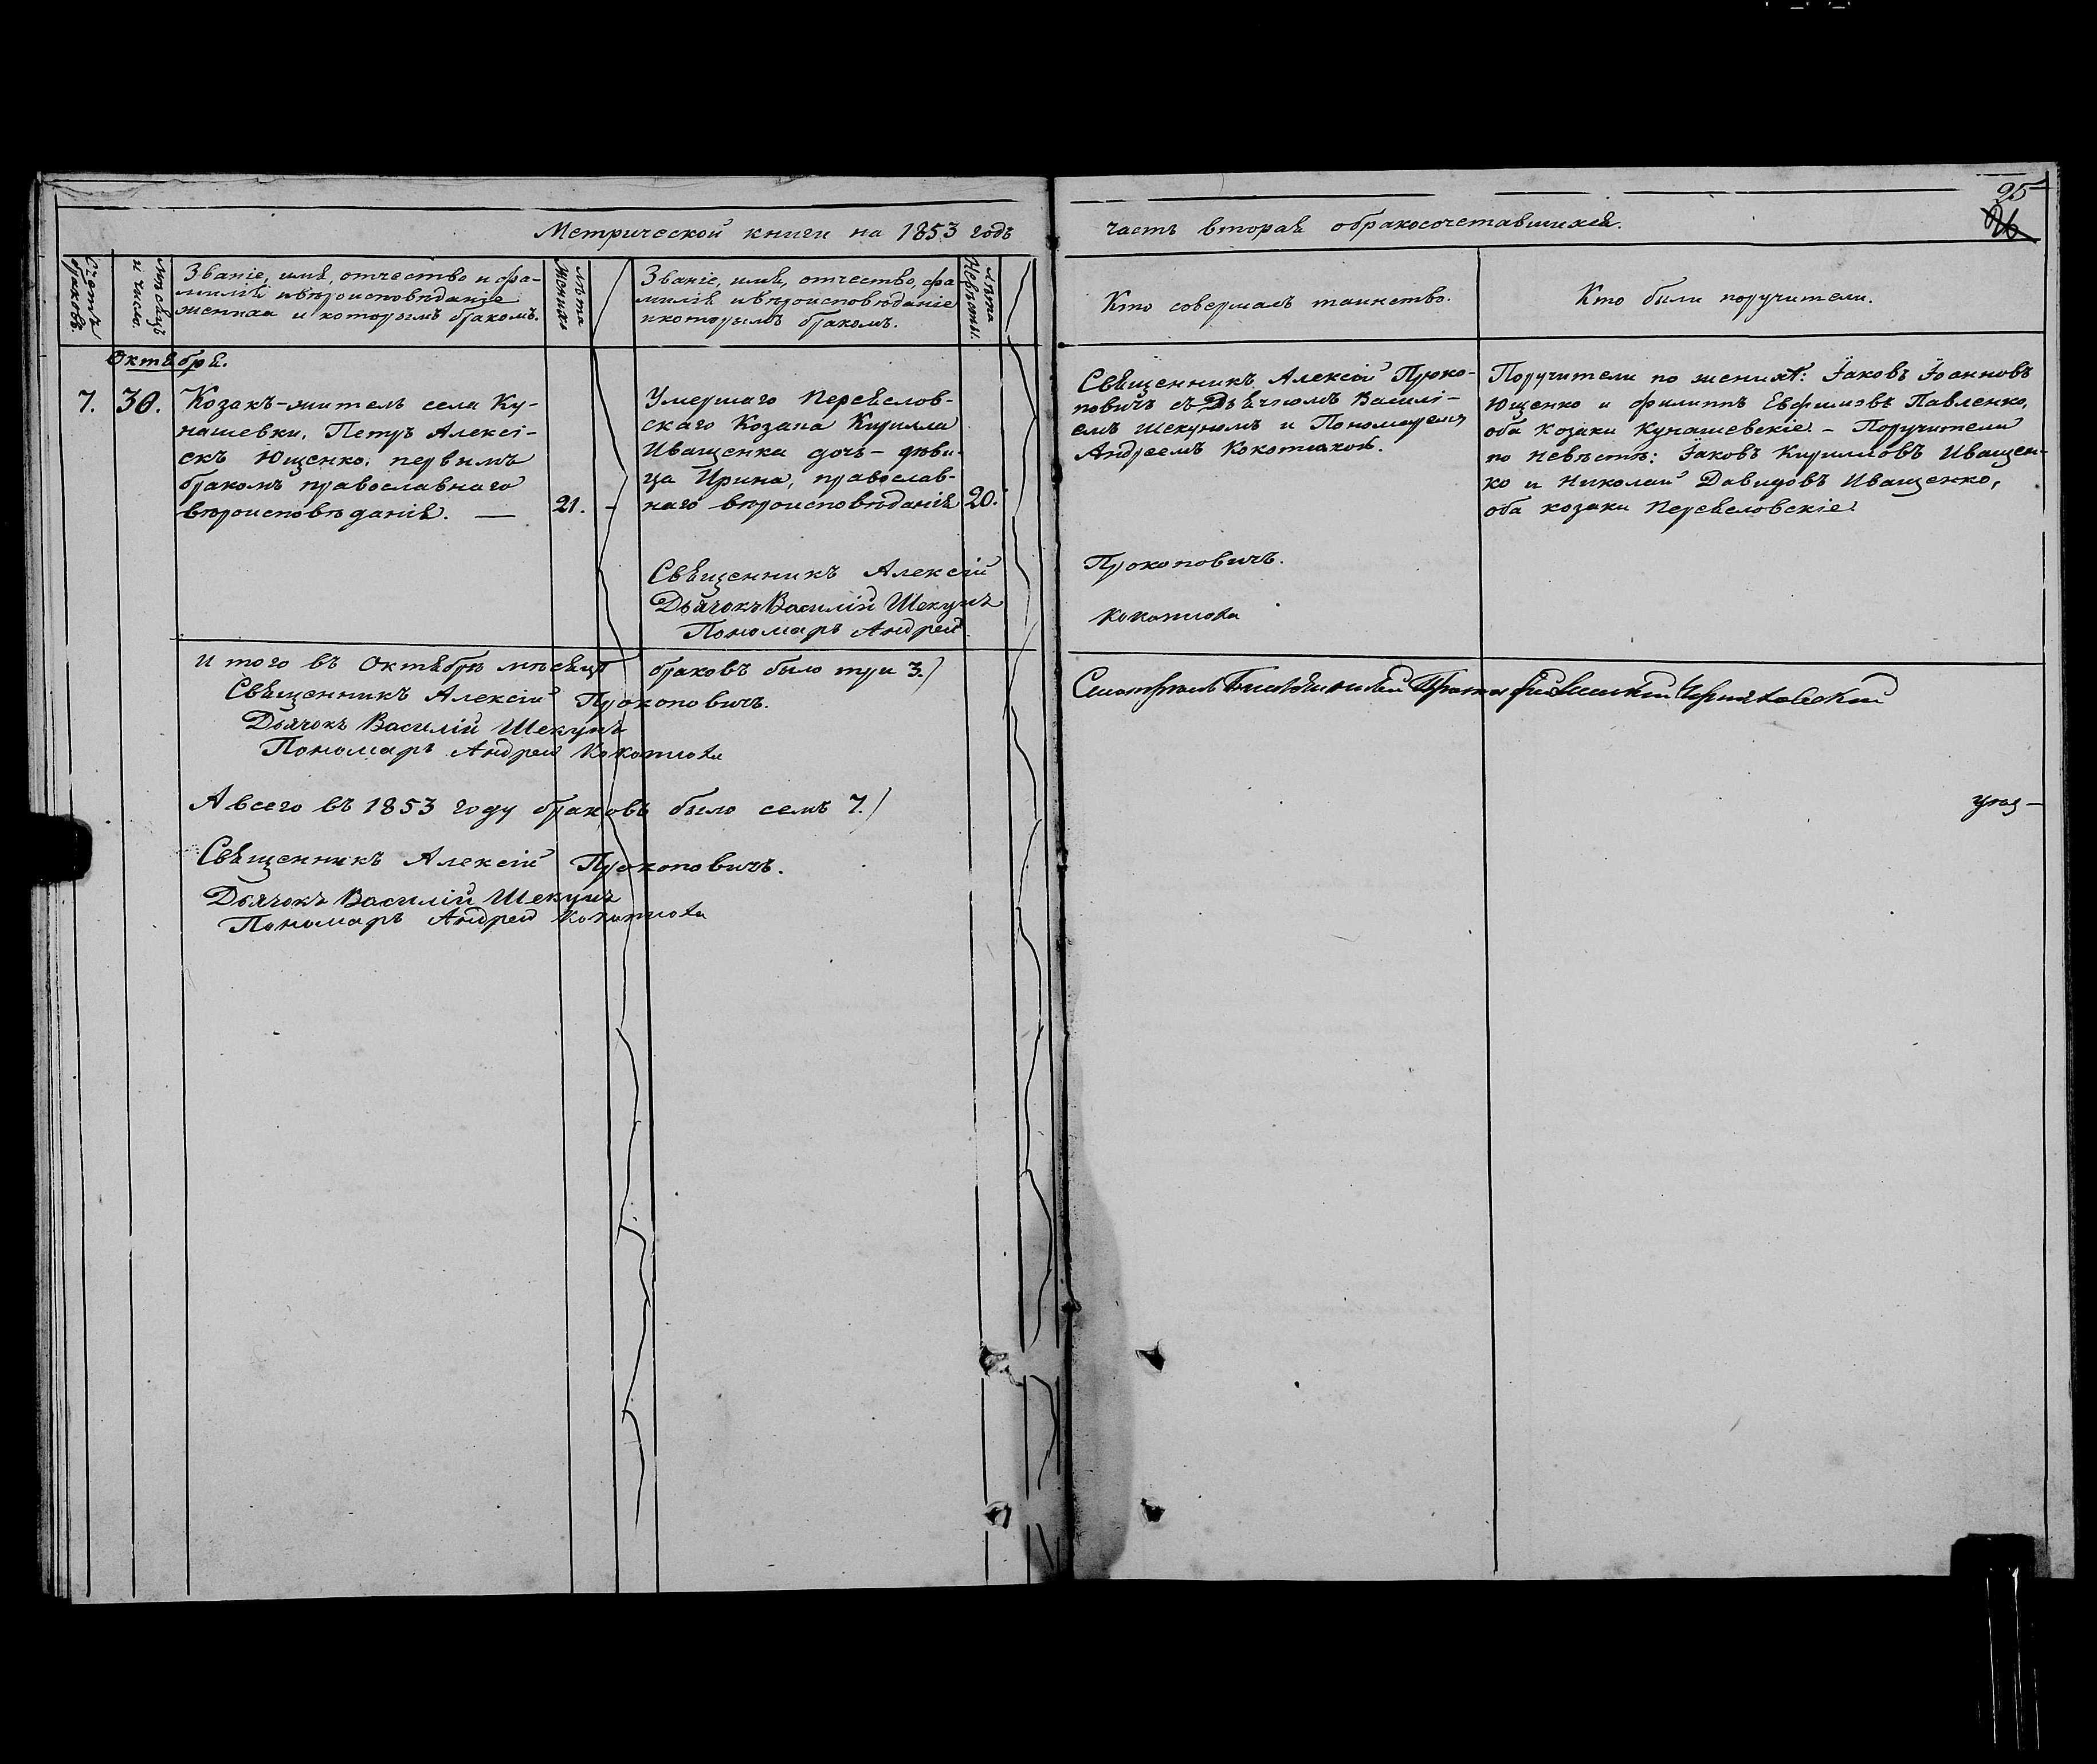 25
26
Метрической книги на 1853 годъ
часть вторая о бракосочетавшихся.
Счетъ браковъ.
Мѣсяцъ и число.
Званіе, имя, отчество и фа-
милія и вѣроисповѣданіе
жениха и которымъ бракомъ.
Лѣта Жениха
Званіе, имя, отчество, фа
милія и вѣроисповѣданіе
и которымъ бракомъ.
Лѣта Невѣсты.
Кто совершалъ таинство.
Кто были поручители.
Октября.
7. 30.
Козакъ-житель села Ку-
нашевки, Петръ Алексі-
евъ Ющенко, первымъ
бракомъ православнаго
вѣроисповѣданія. —
21. -
Умершаго Переяслов-
скаго Козака Кирилла
Иващенка дочь - дѣви-
ца Ирина, православ-
наго вѣроисповѣданія
20.
Священникъ Алексій Проко-
повичъ съ Дьячкомъ Василі-
емъ Шекуномъ и Пономаремъ
Андреемъ Кокотюхою.
Поручители по женихѣ: Іаковъ Іоанновъ
Ющенко и Филиппъ Евфимовъ Павленко,
оба козаки Кунашевскіе. - Поручители
по невѣстѣ: Іаковъ Кирилловъ Иващен-
ко и Николай Давидовъ Иващенко,
оба козаки Переясловскіе.
Священникъ Алексій Прокоповичъ.
Дьячокъ Василій Шекунъ
Пономарь Андрей Кокотюха
Итого въ Октябрѣ мѣсяцѣ браковъ было три 3./
Священникъ Алексій Прокоповичъ.
Дьячокъ Василій Шекунъ
Пономарь Андрей Кокотюха
Смотрѣлъ Благочинный
А всего въ 1853 году браковъ было семъ 7./
Священникъ Алексій Прокоповичъ.
Дьячокъ Василій Шекунъ
Пономарь Андрей Кокотюха